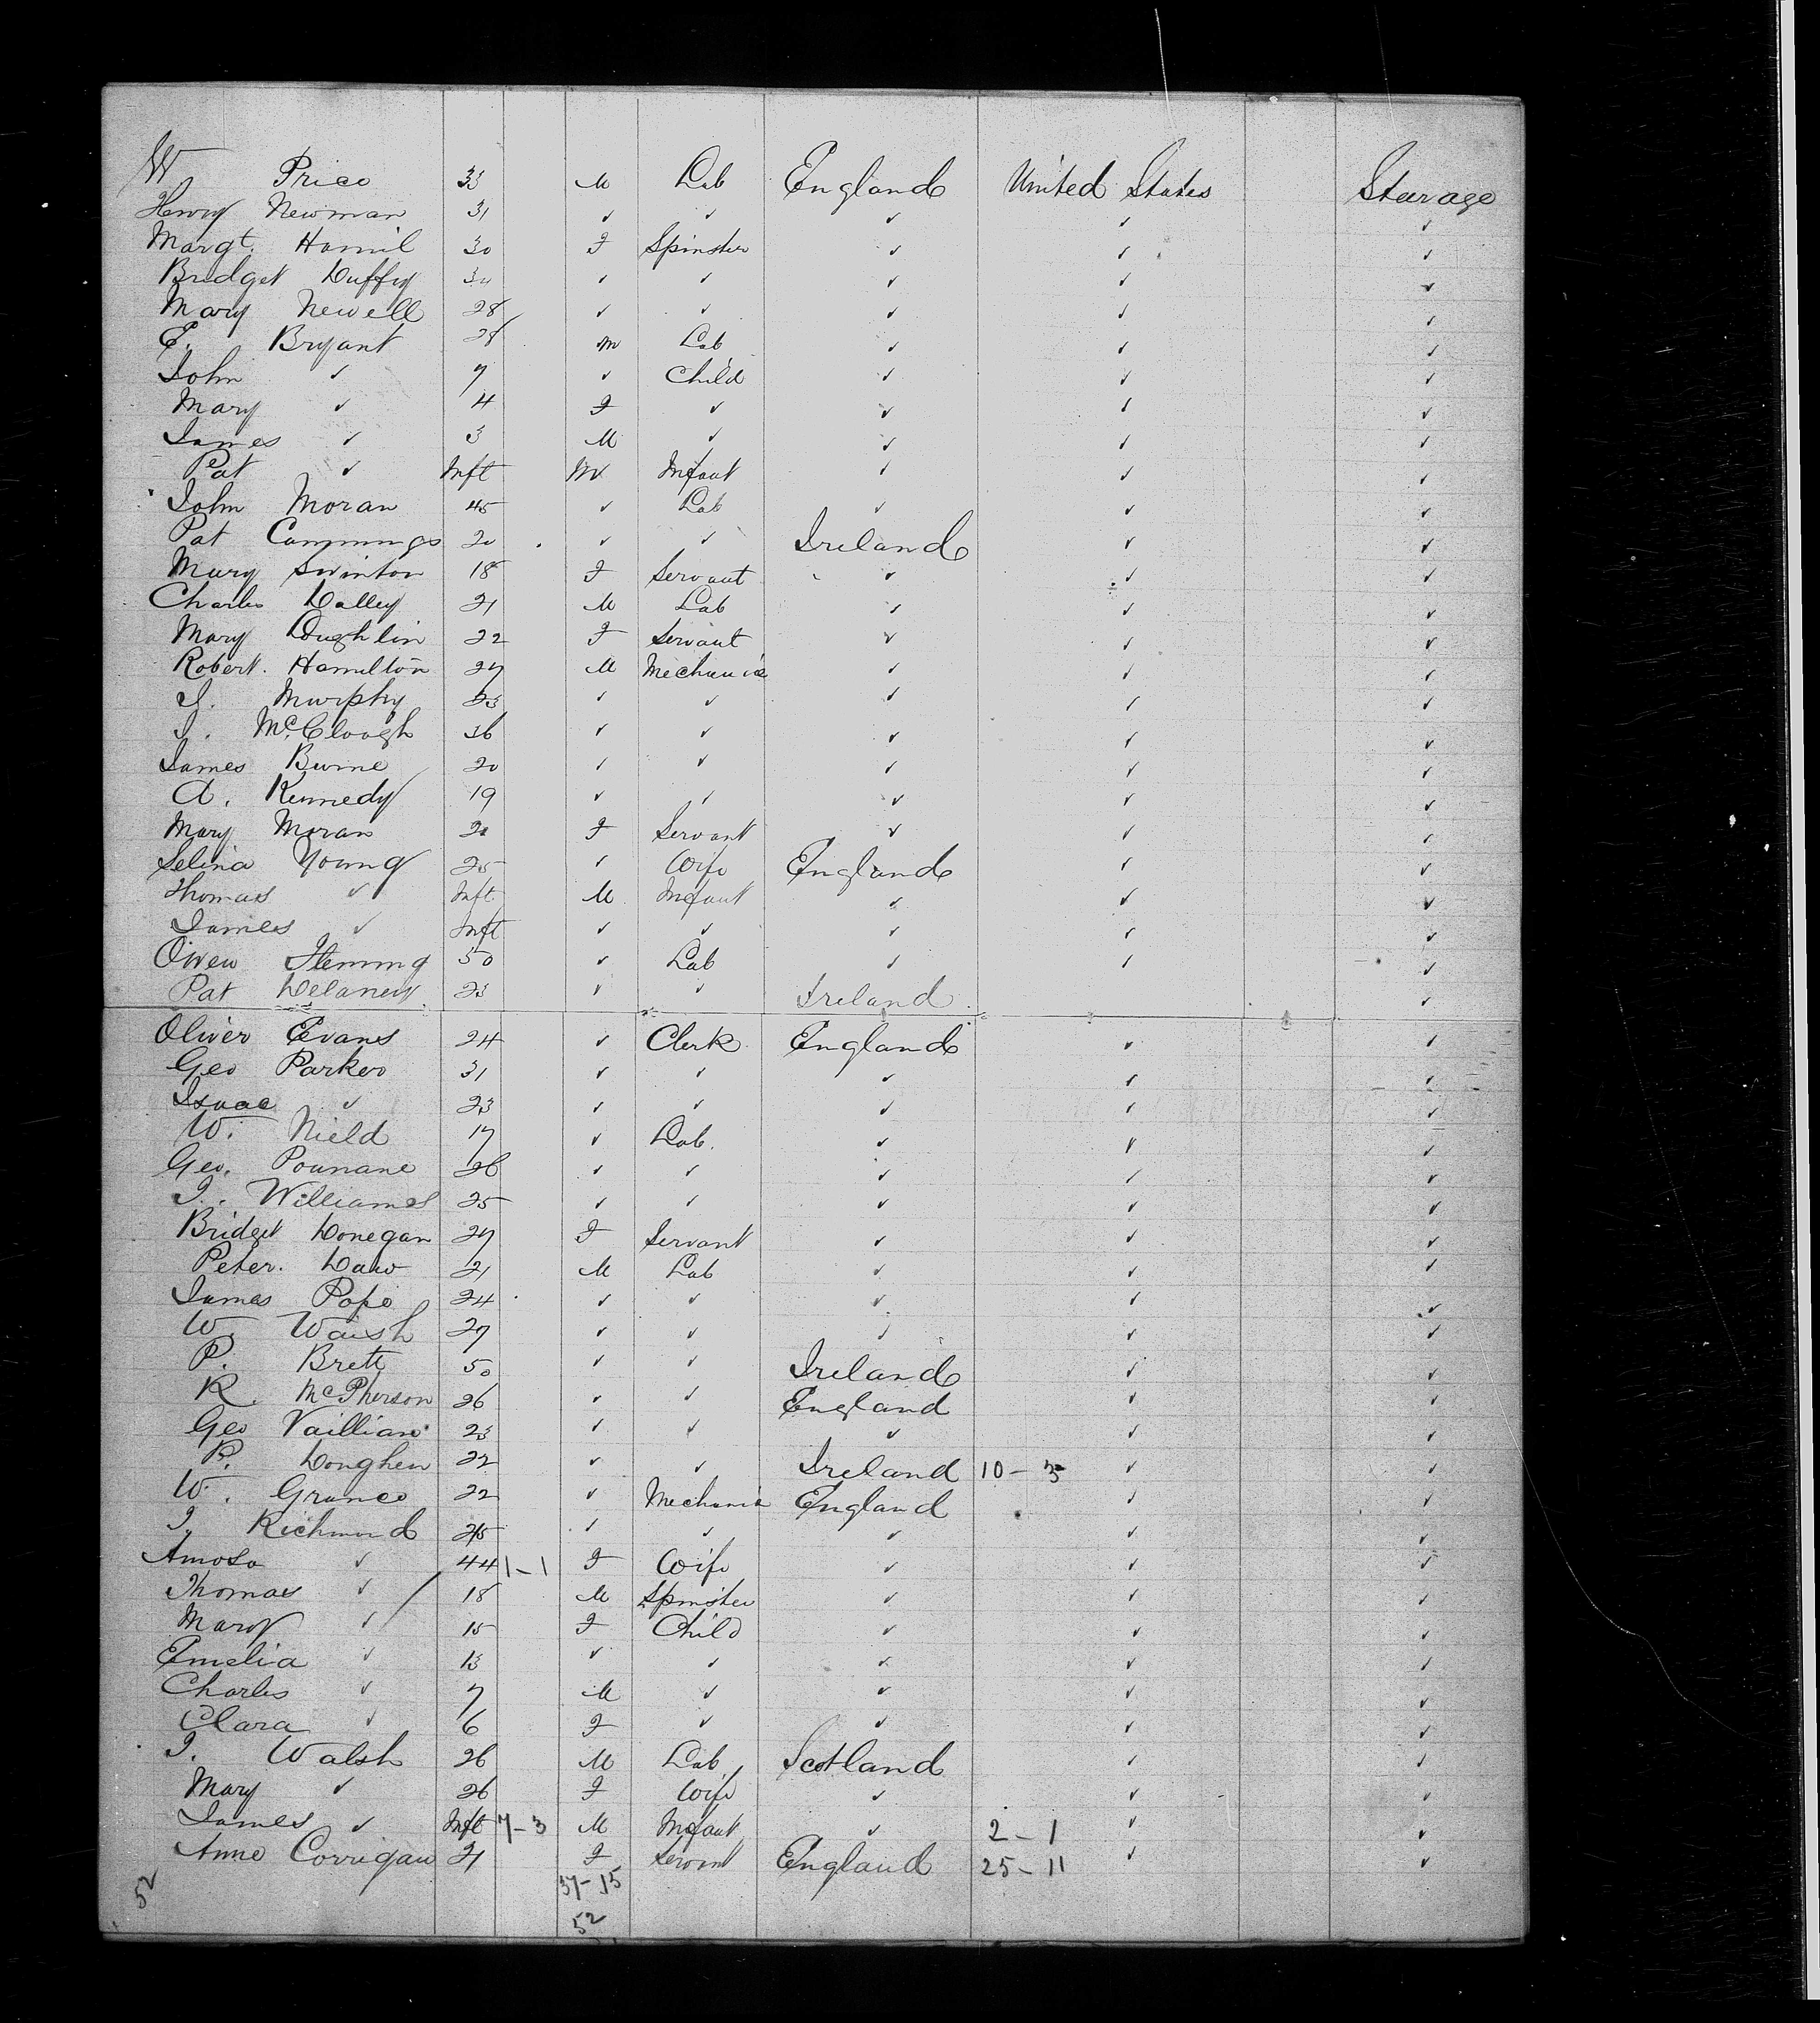 W Price 33 M Lab England United States Stearage
Henry Newman 31 ✓ ✓ ✓ ✓ ✓
Margt. Hamil 30 F Spinster ✓ ✓ ✓
Bridget Duffy 30 ✓ ✓ ✓ ✓ ✓
Mary Newell 28 ✓ ✓ ✓ ✓ ✓
E. Bryant 28 M Lab ✓ ✓ ✓
John ✓ 7 ✓ Child ✓ ✓ ✓
Mary ✓ 4 F ✓ ✓ ✓ ✓
James ✓ 3 M ✓ ✓ ✓ ✓
Pat ✓ Inft M Infant ✓ ✓ ✓
John Moran 45 ✓ Lab ✓ ✓ ✓
Pat Cummings 20 ✓ ✓ Ireland ✓ ✓
Mary Swinton 18 F Servant ✓ ✓ ✓
Charles Dalley 21 M Lab ✓ ✓ ✓
Mary Loughlin 22 F Servant ✓ ✓ ✓
Robert. Hamilton 27 M Mechanic ✓ ✓ ✓
J. Murphy 23 ✓ ✓ ✓ ✓ ✓
J. McClough 36 ✓ ✓ ✓ ✓ ✓
James Burne 20 ✓ ✓ ✓ ✓ ✓
A. Kennedy 19 ✓ ✓ ✓ ✓ ✓
Mary Moran F Servant ✓ ✓ ✓
Selina Young 25 ✓ Wife England ✓ ✓
Thomas ✓ Inft M Infant ✓ ✓ ✓
James ✓ Inft ✓ ✓ ✓ ✓ ✓
Owen Fleming 50 ✓ Lab ✓ ✓ ✓
Pat Delaney 23 ✓ ✓ Ireland ✓
Oliver Evans 24 ✓ Clerk England ✓ ✓
Geo Parker 31 ✓ ✓ ✓ ✓ ✓
Isaac ✓ 23 ✓ ✓ ✓ ✓ ✓
W. Nield 17 ✓ Lab. ✓ ✓ ✓
Geo. Pounane 26 ✓ ✓ ✓ ✓ ✓
J. Williams 25 ✓ ✓ ✓ ✓ ✓
Bridget Donegan 27 F Servant ✓ ✓ ✓
Peter. Daw 21 M Lab ✓ ✓ ✓
James Pope 24 ✓ ✓ ✓ ✓ ✓
W. Waish 27 ✓ ✓ ✓ ✓ ✓
P. Brett 50 ✓ ✓ Ireland ✓ ✓
R. McPherson 26 ✓ ✓ England ✓ ✓
Geo Vaillian 23 ✓ ✓ ✓ ✓ ✓
P. Donghen 22 ✓ ✓ Ireland 10-3 ✓ ✓
W. Grance 22 ✓ Mechanic England ✓ ✓
J. Richmond 45 ✓ ✓ ✓ ✓ ✓
✓ 44 1-1 F Wife ✓ ✓ ✓
Thomas ✓ 18 M Spinster ✓ ✓ ✓
Mary ✓ 15 F Child ✓ ✓ ✓
Emelia ✓ 13 ✓ ✓ ✓ ✓ ✓
Charles ✓ 7 M ✓ ✓ ✓ ✓
Clara ✓ 6 F ✓ ✓ ✓ ✓
J. Walsh 26 M Lab Scotland ✓ ✓
Mary ✓ 26 F Wife ✓ ✓ ✓
James ✓ Inft 7-3 M Infant ✓ 2-1 ✓ ✓
Anne Corrigan 21 F Servant England 25-11 ✓ ✓
52 37-15
52